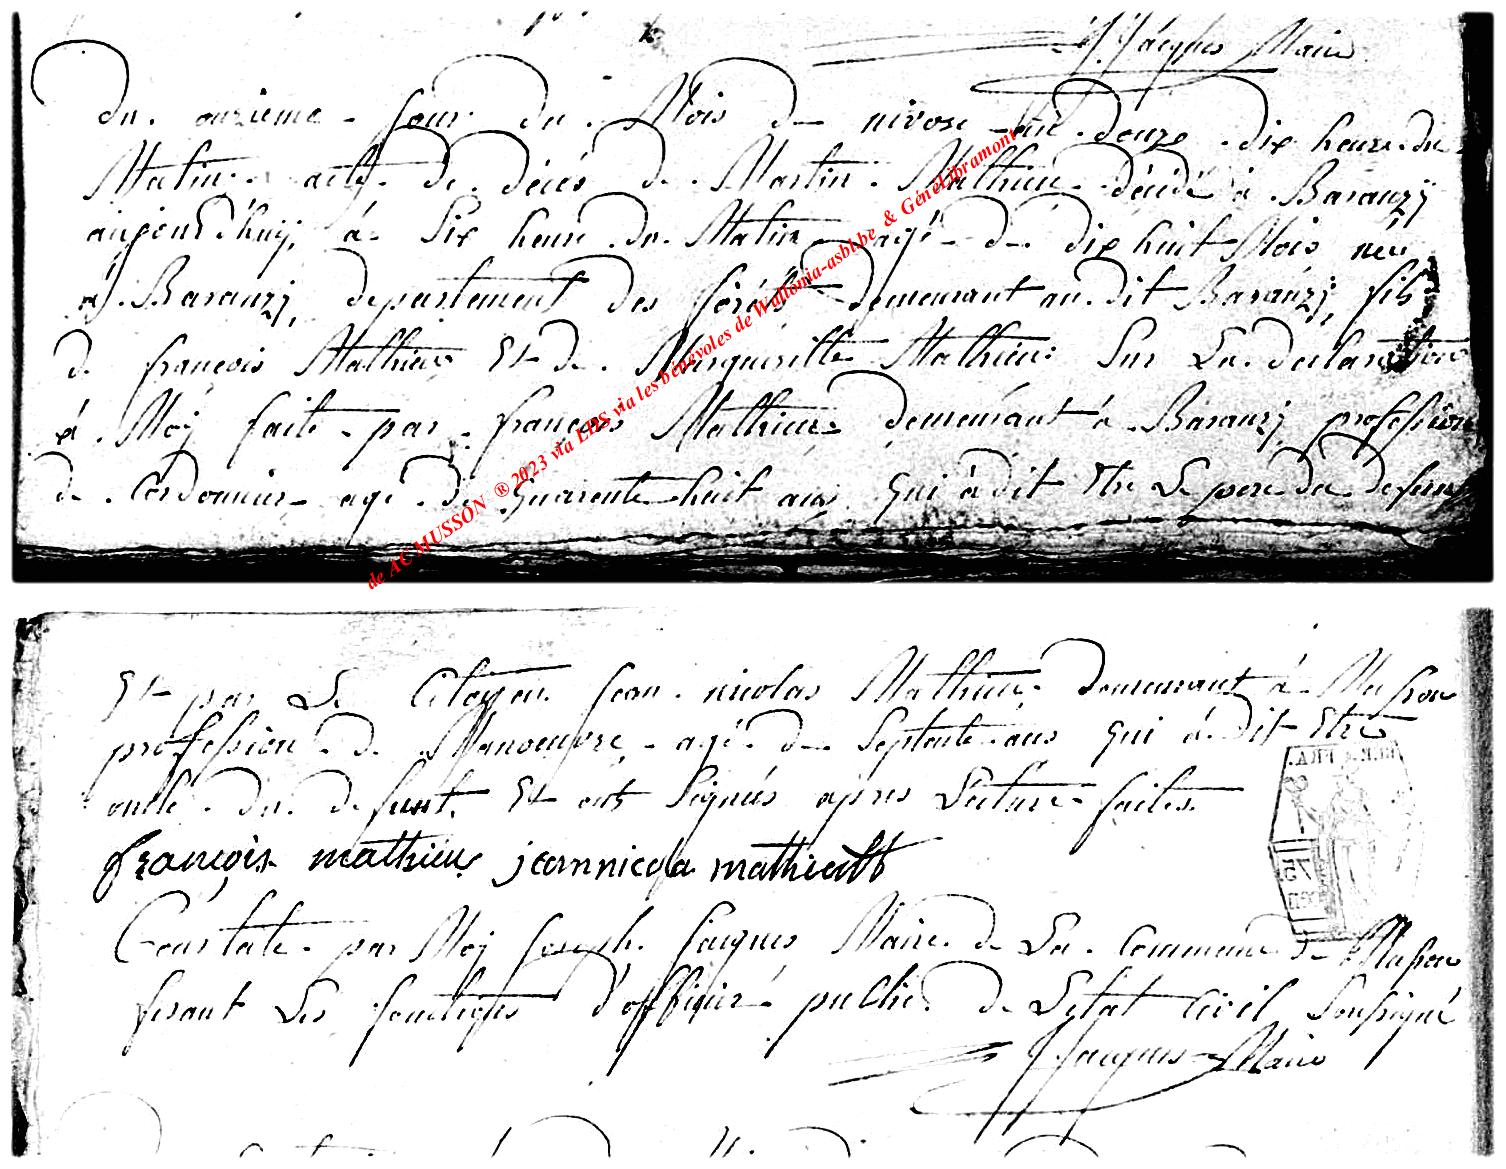 J. Jacques Maire
Du onzieme jour du Mois de nivose an douze dix heure du
Matin acte de décés de Martin Mathieu décédé à Baranzy
aujourd'huy à Six heure du Matin agé de dix huit Mois née
à Baranzy departement des foréts demeurant au dit Baranzy fils
de françois Mathieu Et de Margueritte Mathieu Sur La declaration
à Moÿ faite par françois Mathieu demeurant à Baranzy profession
de Cordonnier agé de quarente huit ans qui à dit Etre Le pere du defunt
de AC MUSSON ® 2023 via LHS via les bénévoles de Wallonia-asbl.be & GéneLibramont
Et par Le Citoyen jean nicolas Mathieu demeurant à Musson
profession de Manoeuvre agé de Septente ans qui à dit Etre
oncle du defunt. Et ont Signés apres Lecture faites
françois mathieu jeannicola mathieu
Constate par Moÿ joseph jacques Maire de La Commune de Musson
fesant Les fonctions d'officier public de Letat Civil Soussigné
J Jacques Maire